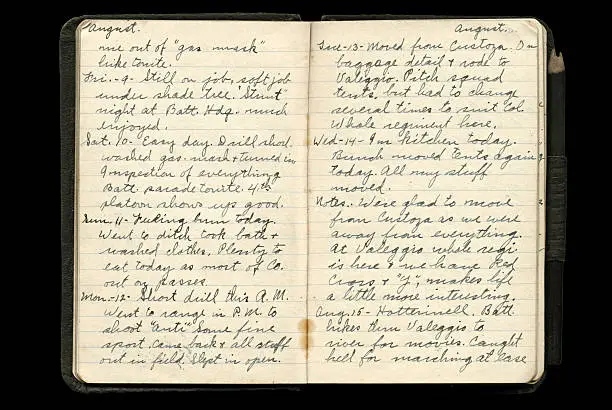 August.
me out of "gas mask"
hike tonite.
Fri. - 9 - Still on job, soft job
under shade tree. "Stunt"
night at Batt. Hdq. much
enjoyed.
Sat. 10 - Easy day. Drill short.
washed gas-mask & turned in
Inspection of everything
Batt. parade tonite. 4th
platoon shows up good.
Sun. 11 - Feeling bum today.
Went to ditch took bath &
washed clothes. Plenty to
eat today as most of Co.
out on passes.
Mon. - 12 - Short drill this A.M.
Went to range in P.M. to
shoot "auti" Some fine
sport. Came back & all stuff
out in field. Slept in open.
August.
Tue - 13 - Moved from Custoza. On
baggage detail & rode to
Valeggio. Pitch squad
tents, but had to change
several times to suit Col.
Whole regiment here.
Wed - 14 - In kitchen today.
Bunch moved tents again
today. All my stuff
moved.
Notes. Were glad to move
from Custoza as we were
away from everything.
At Valeggio whole regi
is here & we have Red
Cross & "Y", makes life
a little more interesting.
Aug. 15 - Hotterinell. Batt.
hikes thru Valeggio to
river for movies. Caught
hell for marching at ease